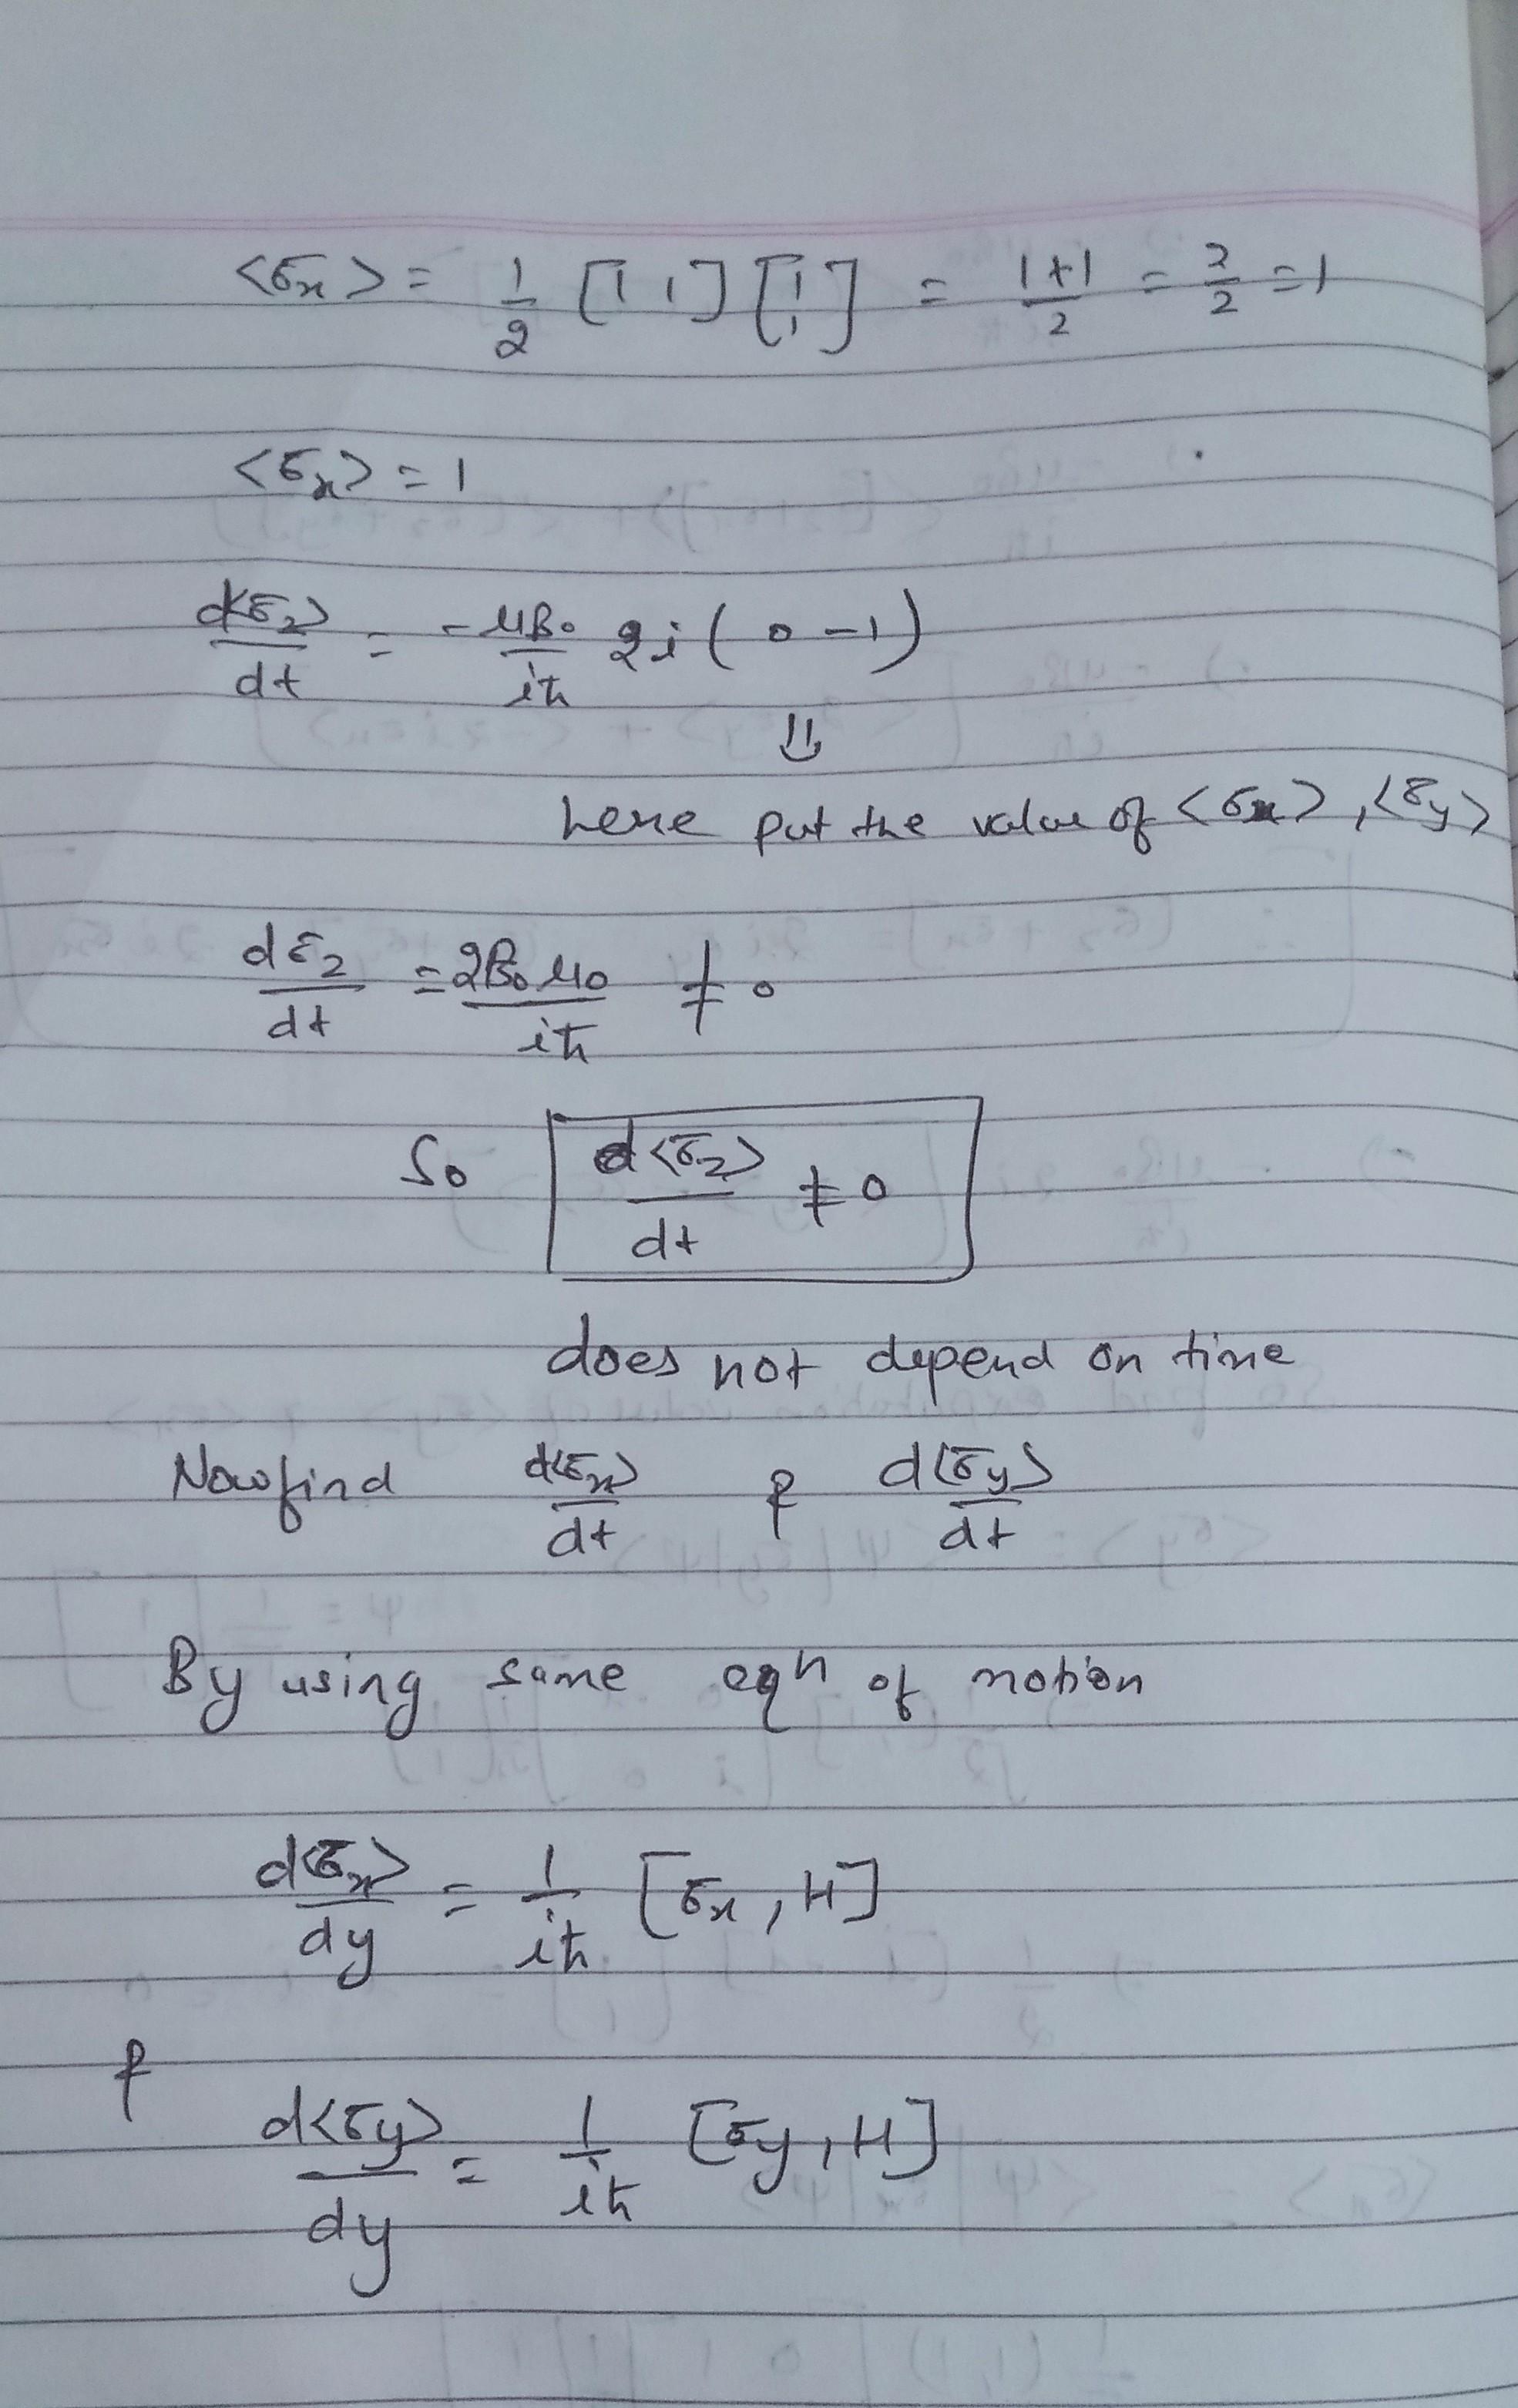 <σx> = 1/2 [1 1] [1 1] = 1+1/2 = 2/2 = 1
<σx> = 1
d<σz>/dt = -μB₀/iħ 2i (0-1)
⇓
here put the value of <σx>, <σy>
dσz/dt = 2B₀μ₀/iħ ≠ 0
So d<σz>/dt ≠ 0
does not depend on time
Now find d<σx>/dt & d<σy>/dt
By using same eqn of motion
d<σx>/dy = 1/iħ [σx, H]
&
d<σy>/dy = 1/iħ [σy, H]